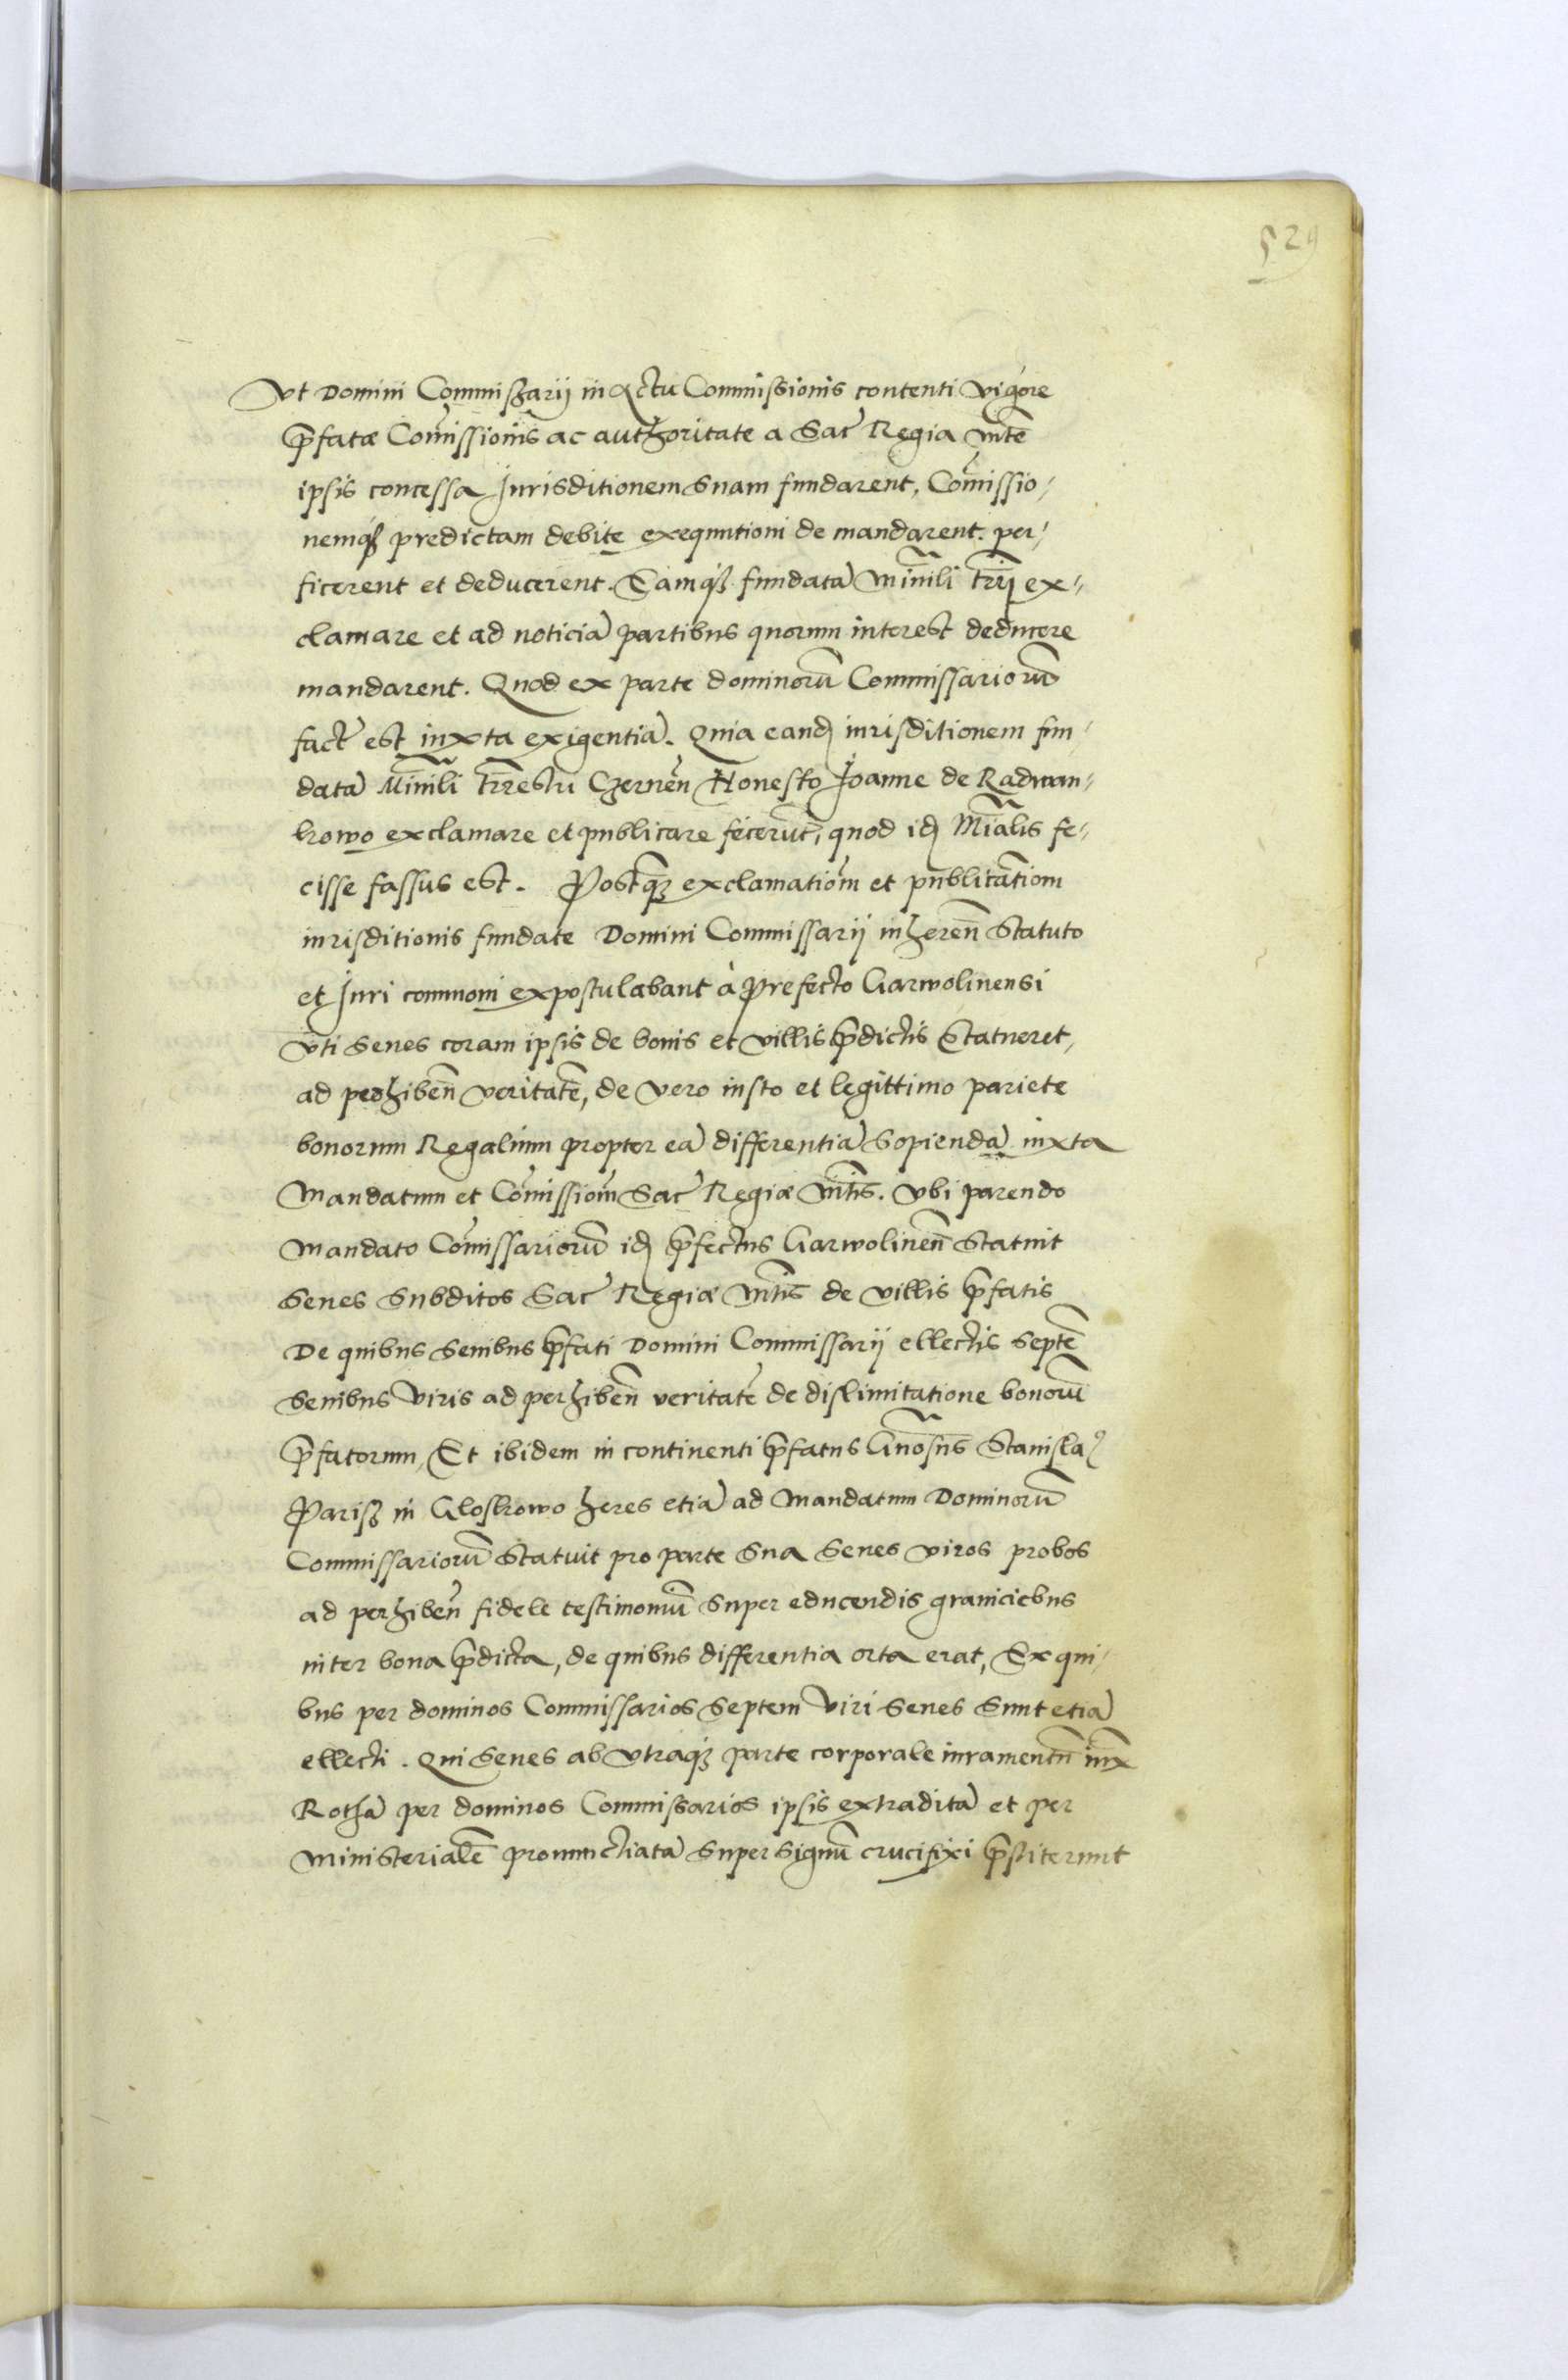 529
Vt Domini Commiszarij in Actu Commissionis contenti vigore
p̄fatæ Com̃issionis ac authoritate a Sac̃ Regia mt̃e
ipsis concessa Jurisditionem suam fundarent, Com̃issio-
nemq̢ predictam debite exequutioni de mandarent. per-
ficerent et deducerent. Eamq̢ fundatã Minĩli tr̃rj ex-
clamare et ad noticiã partibus quorum interest deducere
mandarent. Quod ex parte dominorũ Commissariorũ
fact̃ est iuxta exigentiã. Quia eand̢ iurisditionem fun-
datã Minĩli tr̃restrj Czerneñ Honesto Joanne de Radwan-
kowo exclamare et publicare fecerũt, quod id̢ Mĩalis fe-
cisse fassus est. Postq̃ exclamatiom̃ et publicatiom̃
iurisditionis fundate Domini Commissarij inhereñ Statuto
et Juri communi expostulabant à Prefecto Garwolinensi
vti senes coram ipsis de bonis et villis p̄dictis statueret,
ad perhibeñ veritatẽ, de vero iusto et legittimo pariete
bonorum Regalium propter eã differentiã sopiendã iuxta
mandatum et Com̃issiom̃ Sac̃ Regiæ mt̃is. vbi parendo
mandato Com̃issariorũ id̢ p̄fectus Garwolineñ statuit
senes subditos Sac̃ Regiæ mt̃is de villis p̄fatis
De quibus senibus p̄fati Domini Commissarij ellectis septẽ
senibus viris ad perhibeñ veritatẽ de dislimitatione bonorũ
p̄fatorum, Et ibidem in continenti p̄fatus Gño̅sus Stanisla9
Parisz in Gloskowo heres etiã ad mandatum Dominorũ
Commissariorũ statuit pro parte sua senes viros probos
ad perhibeñ fidele testimoniũ super educendis graniciebus
inter bona p̄dicta, de quibus differentia orta erat, Ex qui-
bus per dominos Commissarios septem viri senes sunt etiã
ellecti. Qui senes ab vtraq̢ parte corporale iuramentũ iux̃
Rothã per dominos Commissarios ipsis extraditã et per
ministerialẽ pronunctiatã super signũ crucifixi p̄stiterunt